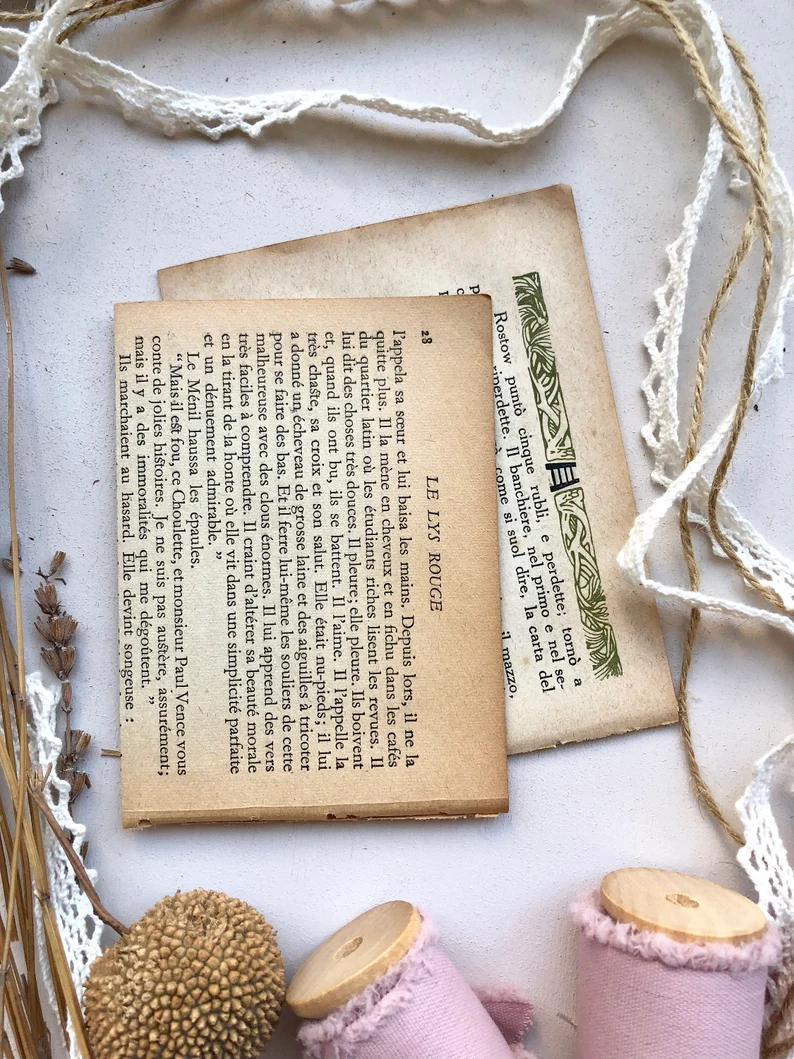 28
LE LYS ROUGE
l'appela sa sœur et lui baisa les mains. Depuis lors, il ne la
quitte plus. Il la mène en cheveux et en fichu dans les cafés
du quartier latin où les étudiants riches lisent les revues. Il
lui dit des choses très douces. Il pleure; elle pleure. Ils boivent
et, quand ils ont bu, ils se battent. Il l'aime. Il l'appelle la
très chaste, sa croix et son salut. Elle était nu-pieds; il lui
a donné un écheveau de grosse laine et des aiguilles à tricoter
pour se faire des bas. Et il ferre lui-même les souliers de cette
malheureuse avec des clous énormes. Il lui apprend des vers
très faciles à comprendre. Il craint d'altérer sa beauté morale
en la tirant de la honte où elle vit dans une simplicité parfaite
et un dénuement admirable. ”
Le Ménil haussa les épaules.
“ Mais il est fou, ce Choulette, et monsieur Paul Vence vous
conte de jolies histoires. Je ne suis pas austère, assurément;
mais il y a des immoralités qui me dégoûtent. ”
Ils marchaient au hasard. Elle devint songeuse :
Rostow puntò cinque rubli, e perdette; tornò a
Il banchiere, nel primo e nel se-
come si suol dire, la carta del
il mazzo,